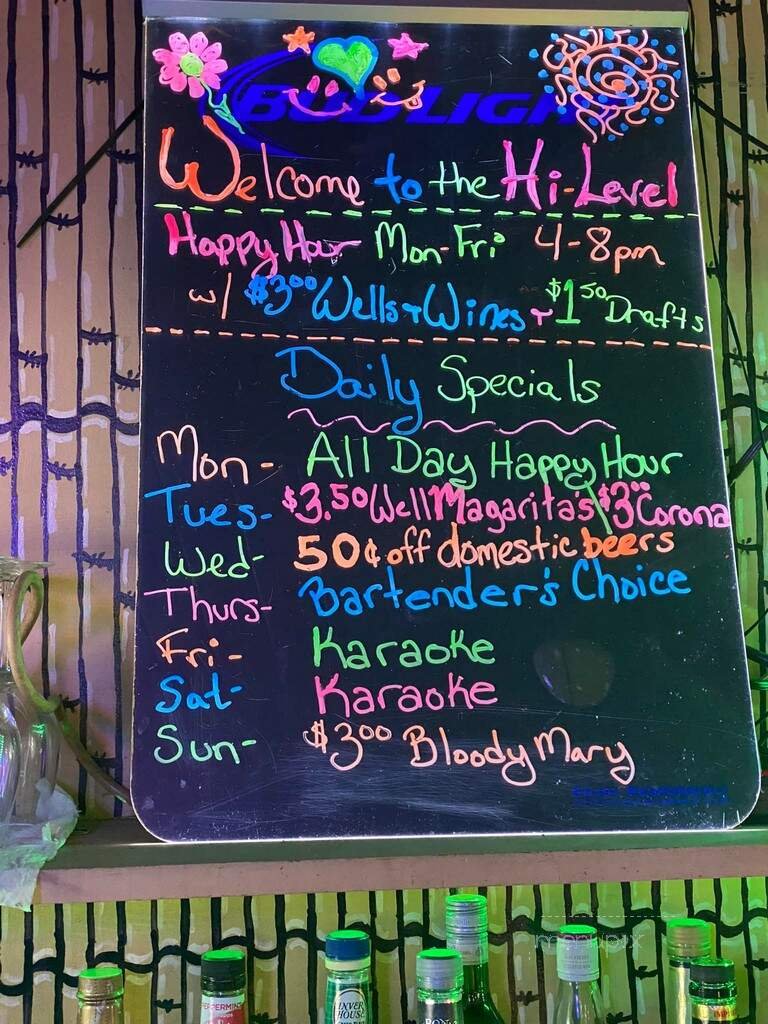 BUD LIGHT
Welcome to the Hi-Level
Happy Hour Mon-Fri 4-8pm
w/ $3.00 Wells + Wines + $1.50 Drafts
Daily Specials
Mon- All Day Happy Hour
Tues- $3.50 Well Magarita's $3.00 Corona
Wed- 50¢ off domestic beers
Thurs- Bartender's Choice
Fri- Karaoke
Sat- Karaoke
Sun- $3.00 Bloody Mary
menupix
PEPPERMINT
INVER
HOUSE